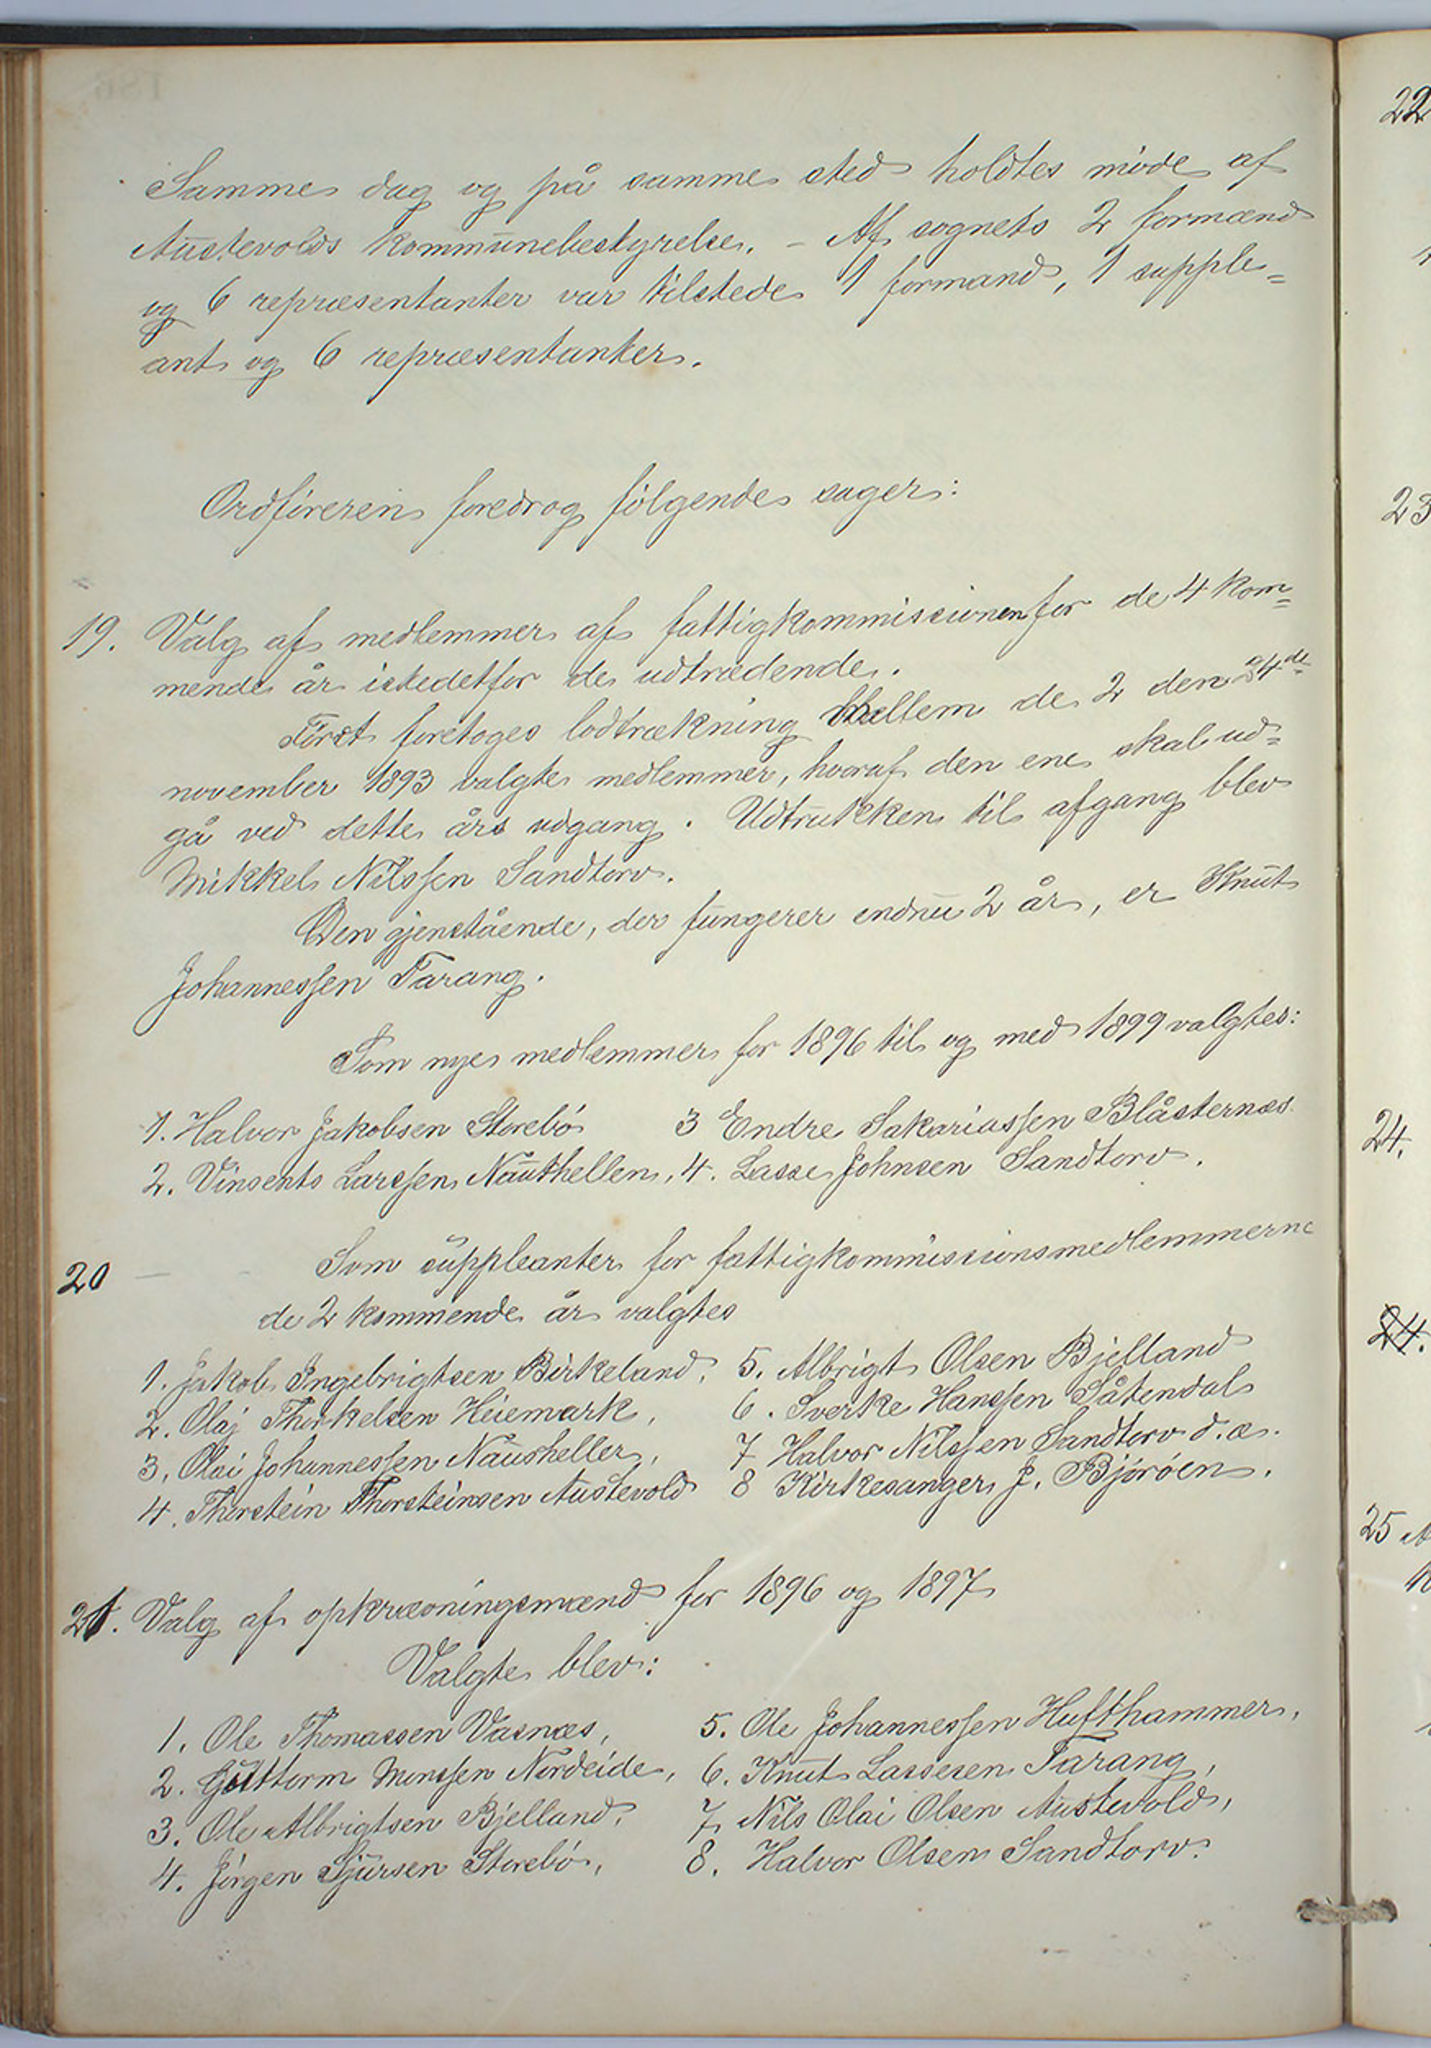 Samme dag og på samme sted holdtes møde af
Austevolds kommunebestyrelse. – Af sognets 2 formænd
og 6 repræsentanter var tilstede 1 formand, 1 supple=
ant og 6 repræsentanter.
Ordføreren foredrog følgende sager:
19. Valg af medlemmer af fattigkommissionen for de 4 kom=
mende år istedetfor de udtrædende.
Først foretoges lodtrækning mellem de 2 den 24de
november 1893 valgte medlemmer, hvoraf den ene skal ud=
gå ved dette års udgang. Udtrukken til afgang blev
Mikkel Nilssen Sandtorv.
Den gjenstående, der fungerer endnu 2 år, er Knut
Johannessen Tarang.
Som nye medlemmer for 1896 til og med 1899 valgtes:
1. Halvor Jakobsen Storebø 3 Endre Sakariassen Blåsternæs
2. Vinsents Larssen Nauthellen, 4. Lasse Johnsen Sandtorv.
20 Som suppleanter for fattigkommissionsmedlemmerne
de 2 kommende år valgtes
1. Jakob Ingebrigtsen Birkeland, 5. Albrigt Olsen Bjelland
2. Olaj Thorkelsen Heiemark, 6. Sverke Hanssen Såtendal
3. Olai Johannessen Nausheller, 7 Halvor Nilssen Sandtorv d. æ.
4. Thorstein Thorsteinsen Austevold 8 Kirkesanger J. Bjørøen.
21. Valg af opkrævningsmænd for 1896 og 1897
Valgte blev:
1. Ole Thomassen Vasnæs, 5. Ole Johannessen Hufthammer,
2. Guttorm Monssen Nordeide, 6. Knut Lassesen Tarang,
3. Ole Albrigtsen Bjelland, 7 Nils Olai Olsen Austevold,
4. Jørgen Sjursen Storebø, 8. Halvor Olsen Sandtorv.
22
23
24.
24.
25